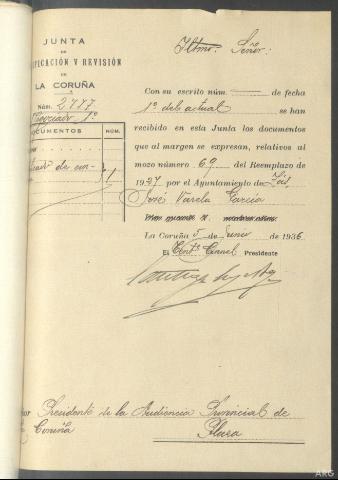 JUNTA
DE
IFICACIÓN Y REVISIÓN
DE
LA CORUÑA
Núm. 2717
Negociado 1º
OCUMENTOS NÚM.
ficado de con- 1
Iltmo. Señor:
Con su escrito núm. — de fecha
1º del actual se han
recibido en esta Junta los documentos
que al margen se expresan, relativos al
mozo número 69 del Reemplazo de
1927 por el Ayuntamiento de
José Varela García
La Coruña 5 de Junio de 1936
El Tente. Coronel Presidente
or Presidente de la Audiencia Provincial de
Coruña Plaza
ARG